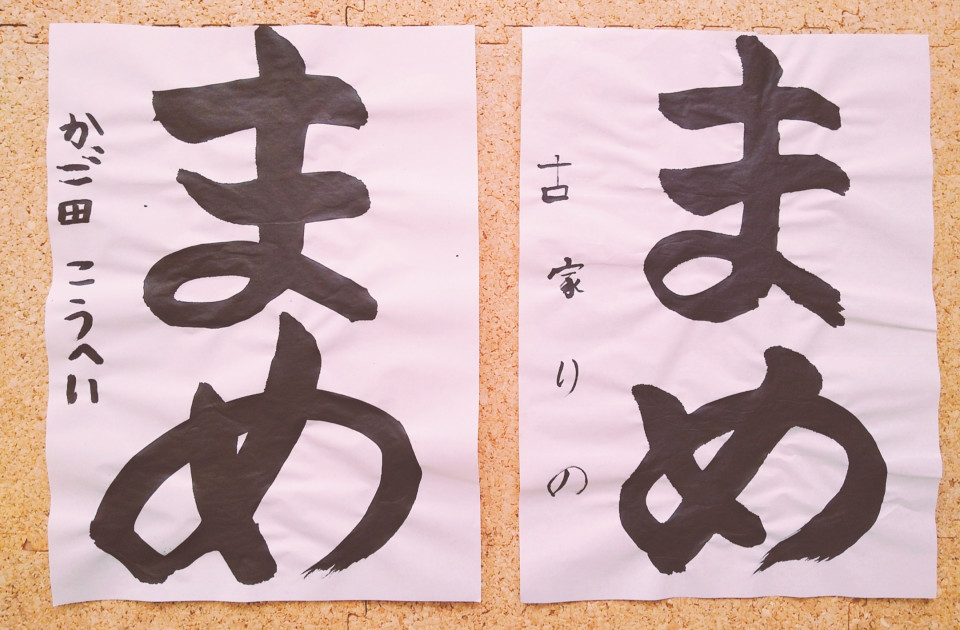 まめ
古家りの
まめ
かご田こうへい